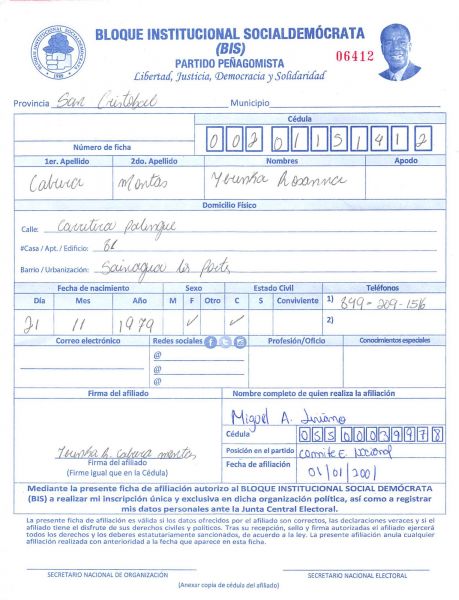 BLOQUE INSTITUCIONAL SOCIALDEMÓCRATA
(BIS)
PARTIDO PEÑAGOMISTA
Libertad, Justicia, Democracia y Solidaridad
06412
Provincia San Cristobal Municipio
Cédula
Número de ficha 00201151412
1er. Apellido 2do. Apellido Nombres Apodo
Cabrera Montas Rosanna
Domicilio Físico
Calle: Carretera palenque
#Casa / Apt. / Edificio: 81
Barrio / Urbanización:
Fecha de nacimiento Sexo Estado Civil Teléfonos
Día Mes Año M F Otro C S Conviviente 1) 849-209-1516
21 11 1979 ✓ ✓ 2)
Correo electrónico Redes sociales Profesión/Oficio Conocimientos especiales
@
@
@
Firma del afiliado Nombre completo de quien realiza la afiliación
Miguel A.
Cédula 05500039478
Posición en el partido Comite E. Nacional
Firma del afiliado
(Firma igual que en la Cédula)
Fecha de afiliación 01/01/2001
Mediante la presente ficha de afiliación autorizo al BLOQUE INSTITUCIONAL SOCIAL DEMÓCRATA
(BIS) a realizar mi inscripción única y exclusiva en dicha organización política, así como a registrar
mis datos personales ante la Junta Central Electoral.
La presente ficha de afiliación es válida si los datos ofrecidos por el afiliado son correctos, las declaraciones veraces y si el
afiliado tiene el disfrute de sus derechos civiles y políticos. Tras su recepción, sello y firma autorizadas el afiliado ejercerá
todos los derechos y los deberes estatutariamente sancionados, de acuerdo a la ley. La presente afiliación anula cualquier
afiliación realizada con anterioridad a la fecha que aparece en esta ficha.
SECRETARIO NACIONAL DE ORGANIZACIÓN SECRETARIO NACIONAL ELECTORAL
(Anexar copia de cédula del afiliado)